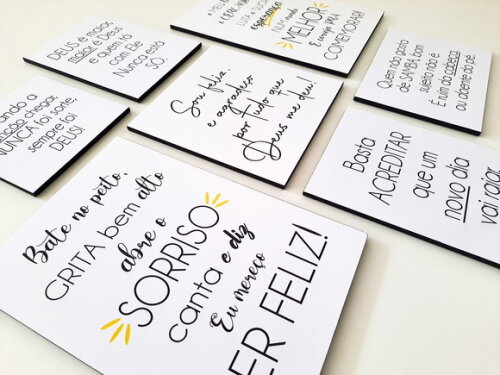 DEUS é maior,
maior é Deus
e quem tá
com Ele
Nunca está
SÓ...
LUTA
esperança
MELHOR
E tempo pra
COMEMORAR!
Quem não gosta
de SAMBA, bom
sujeito não é
É ruim da cabeça
ou doente do pé.
chegar,
NUNCA foi sorte,
sempre foi
DEUS!
Sou feliz,
e agradeço
por tudo que
Deus me deu!
Basta
ACREDITAR
que um
novo dia
vai raiar
Bate no peito
GRITA bem alto
abre o
SORRISO
canta e diz
Eu mereço
ER FELIZ!